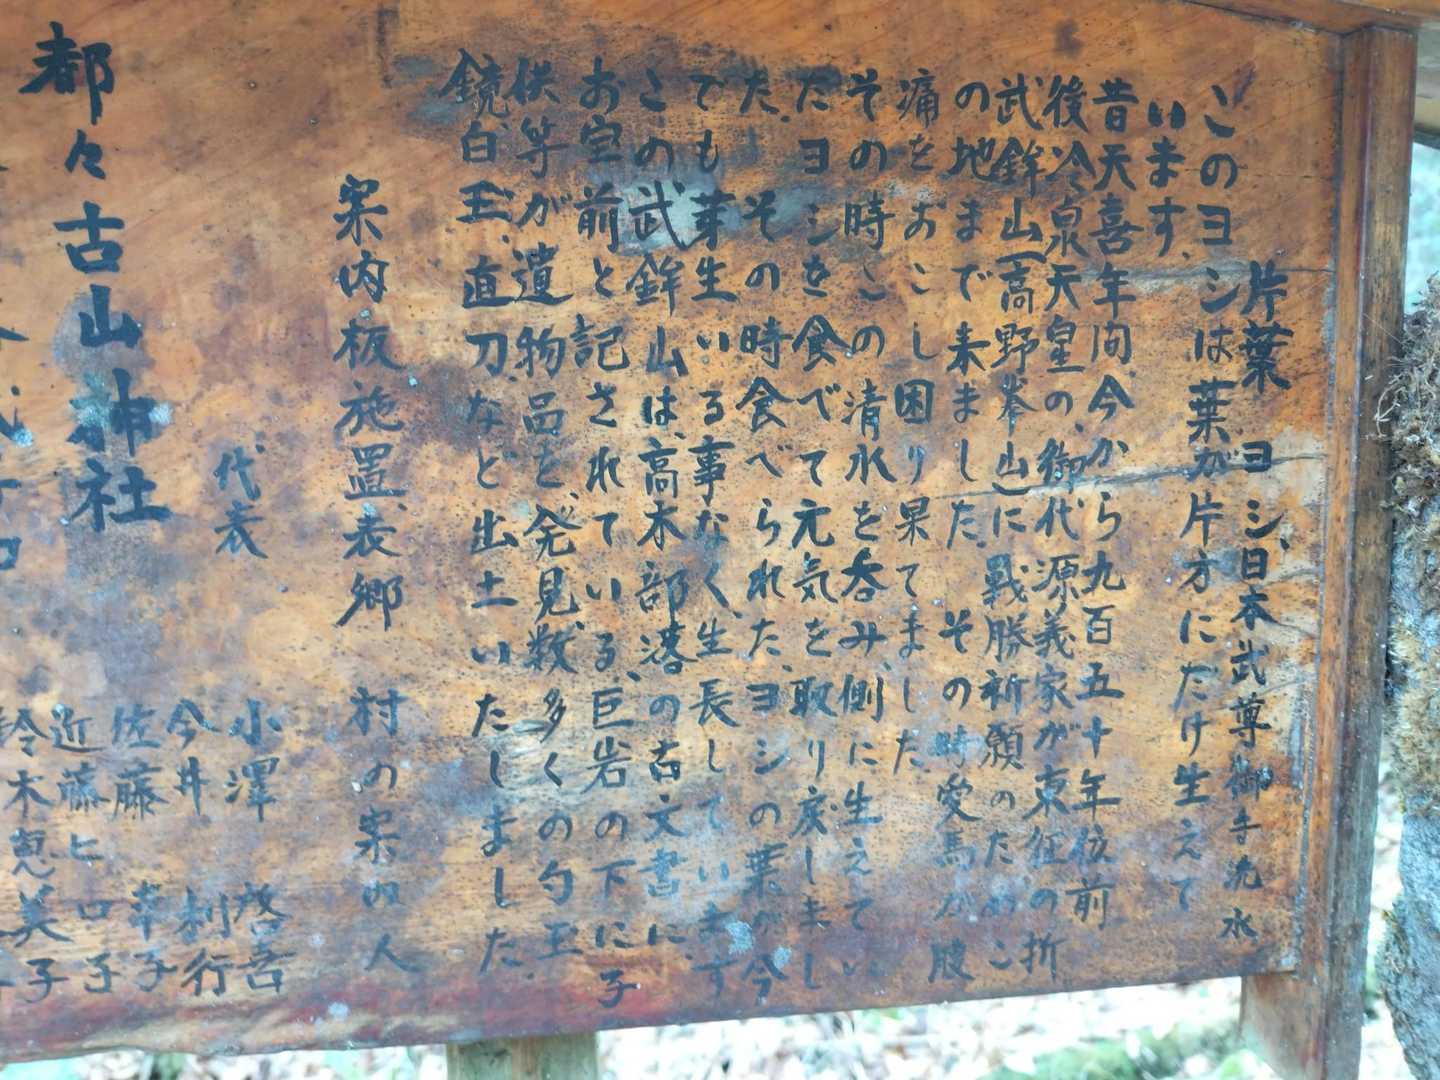 片葉 ヨシ、日本武尊御手洗水
このヨシは葉が片方にだけ生えて
います。
昔天喜年间今から九百五十年位前
後冷泉天皇の、御代源義家が東征の折
武鉾山(高野峯山)に戦勝祈願のためこ
の地まで来ました。その時愛馬が腹
痛をおこし困り果てました
その時この清水を呑み、側に生えてい
たヨシを食べて元気を取り戻しまし
た。その時食べられた、ヨシの葉が今
でも芽生いる事なく、生長しています
この武鉾山は、高木部落の古文書に、
お宝前と記されている、巨岩の下に子
供等が遺物品を、発見、数多くの勾玉
鏡、白玉、直刀、など出土いたしました。
案内板施置、表郷 村の案内人
代表 小澤 啓吾
今井 利行
佐藤 幸子
近藤ヒロ子
鈴木恵美子
都々古山神社